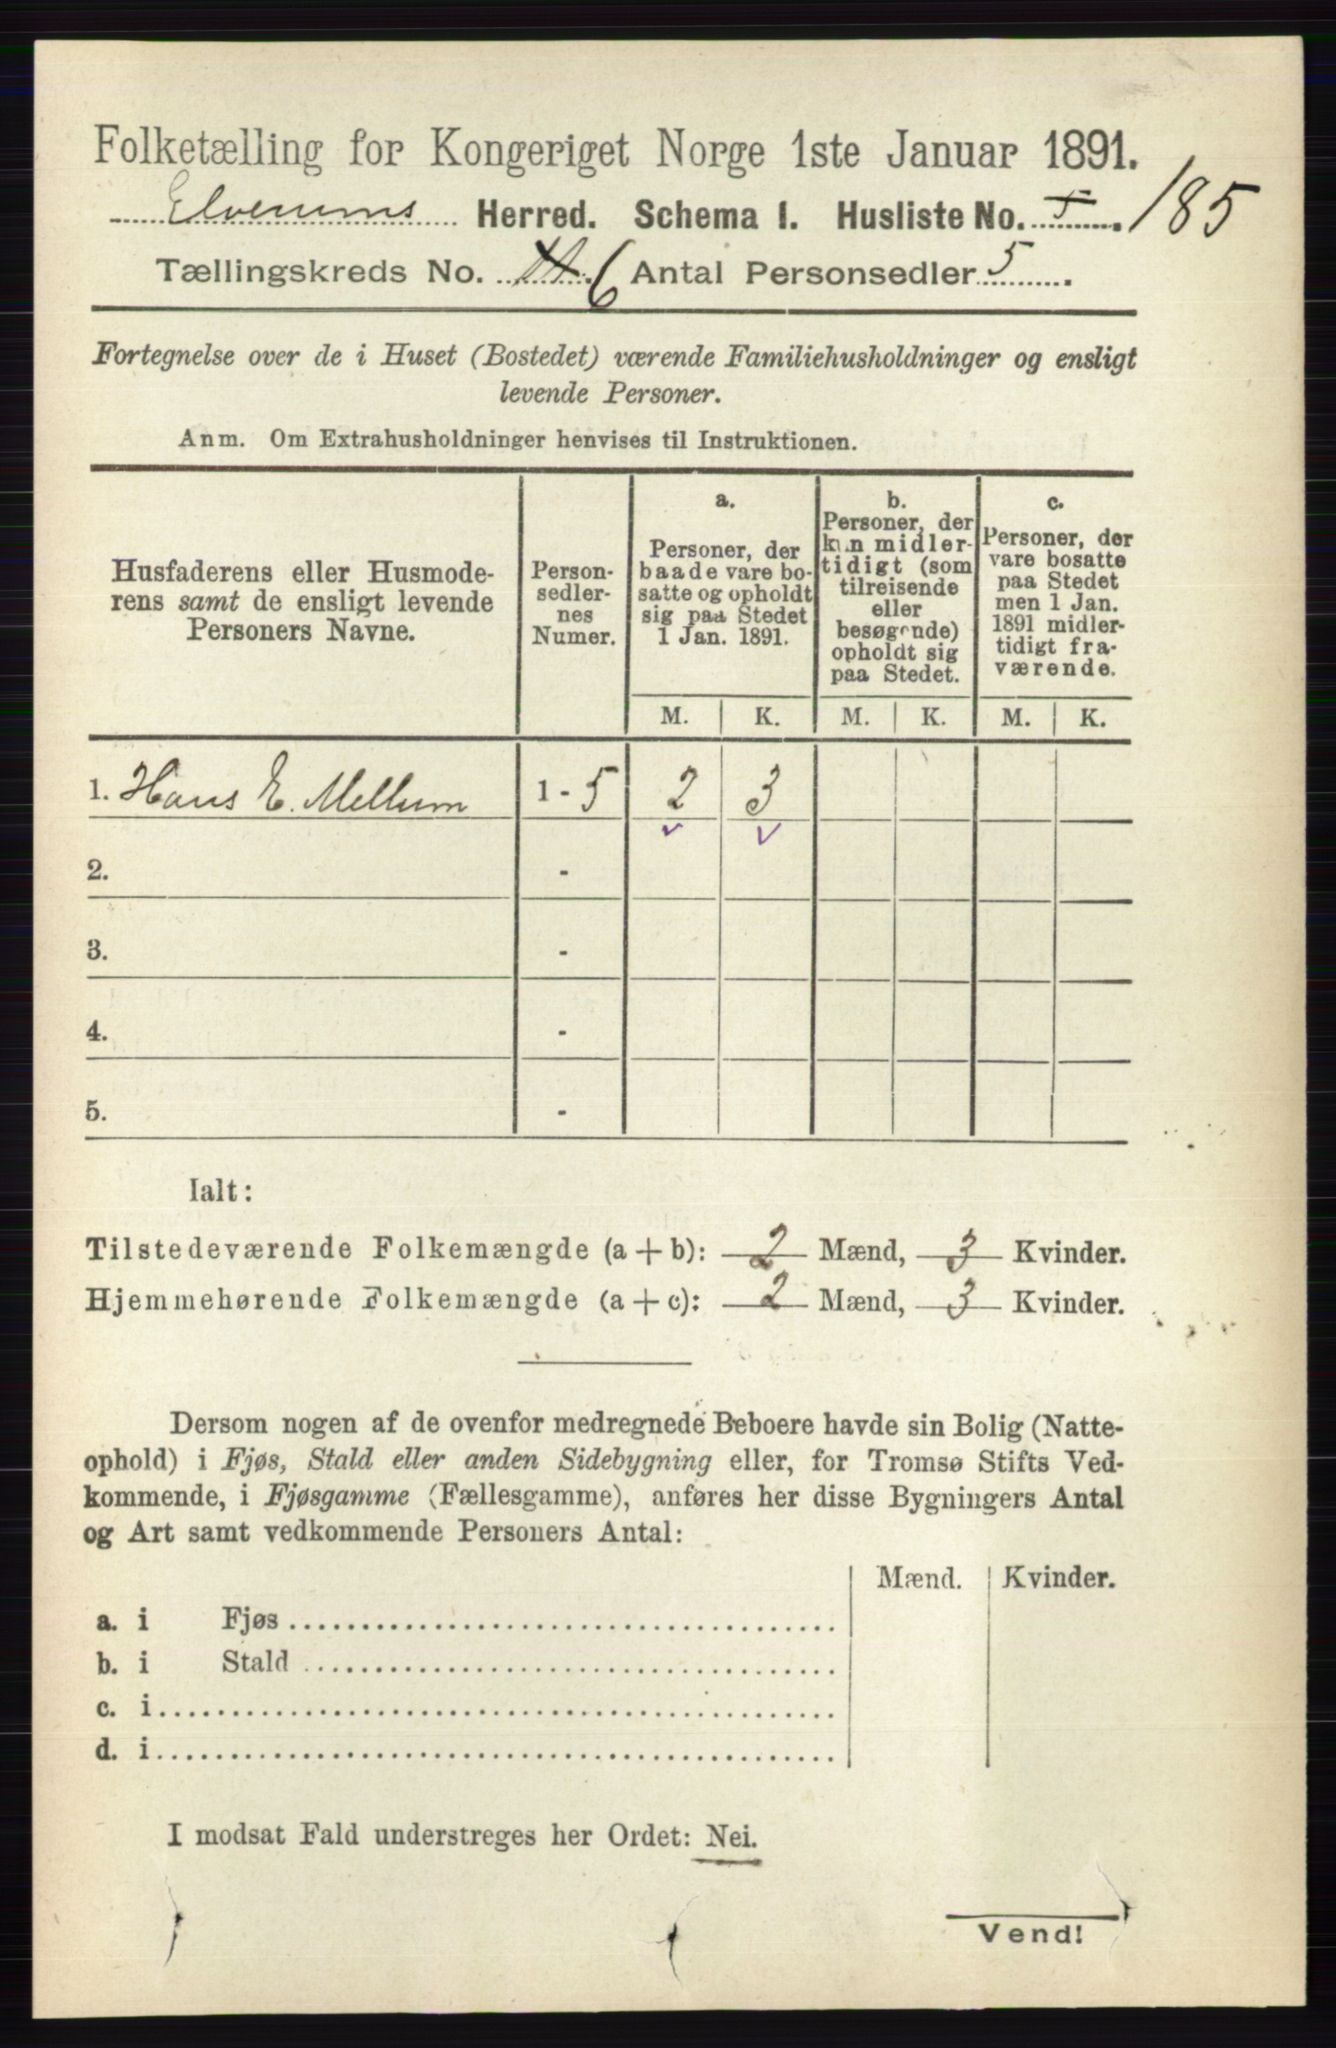 Folketælling for Kongeriget Norge 1ste Januar 1891.
Elverums Herred. Schema I. Husliste No. 5. 185
Tællingskreds No. 6 Antal Personsedler 5.
Fortegnelse over de i Huset (Bostedet) værende Familiehusholdninger og ensligt
levende Personer.
Anm. Om Extrahusholdninger henvises til Instruktionen.
Husfaderens eller Husmode-
rens samt de ensligt levende
Personers Navne.
Person-
sedler-
nes
Numer.
a.
Personer, der
baade vare bo-
satte og opholdt
sig paa Stedet
1 Jan. 1891.
b.
Personer, der
kun midler-
tidigt (som
tilreisende
eller
besøgende)
opholdt sig
paa Stedet.
c.
Personer, der
vare bosatte
paa Stedet
men 1 Jan.
1891 midler-
tidigt fra-
værende.
M. K. M. K. M. K.
1. Hans E. Mellum 1 - 5 2 3
2. -
3. -
4. -
5. -
Ialt:
Tilstedeværende Folkemængde (a + b): 2 Mænd, 3 Kvinder.
Hjemmehørende Folkemængde (a + c): 2 Mænd, 3 Kvinder.
Dersom nogen af de ovenfor medregnede Beboere havde sin Bolig (Natte-
ophold) i Fjøs, Stald eller anden Sidebygning eller, for Tromsø Stifts Ved-
kommende, i Fjøsgamme (Fællesgamme), anføres her disse Bygningers Antal
og Art samt vedkommende Personers Antal:
Mænd. Kvinder.
a. i Fjøs
b. i Stald
c. i
d. i
I modsat Fald understreges her Ordet: Nei.
Vend!